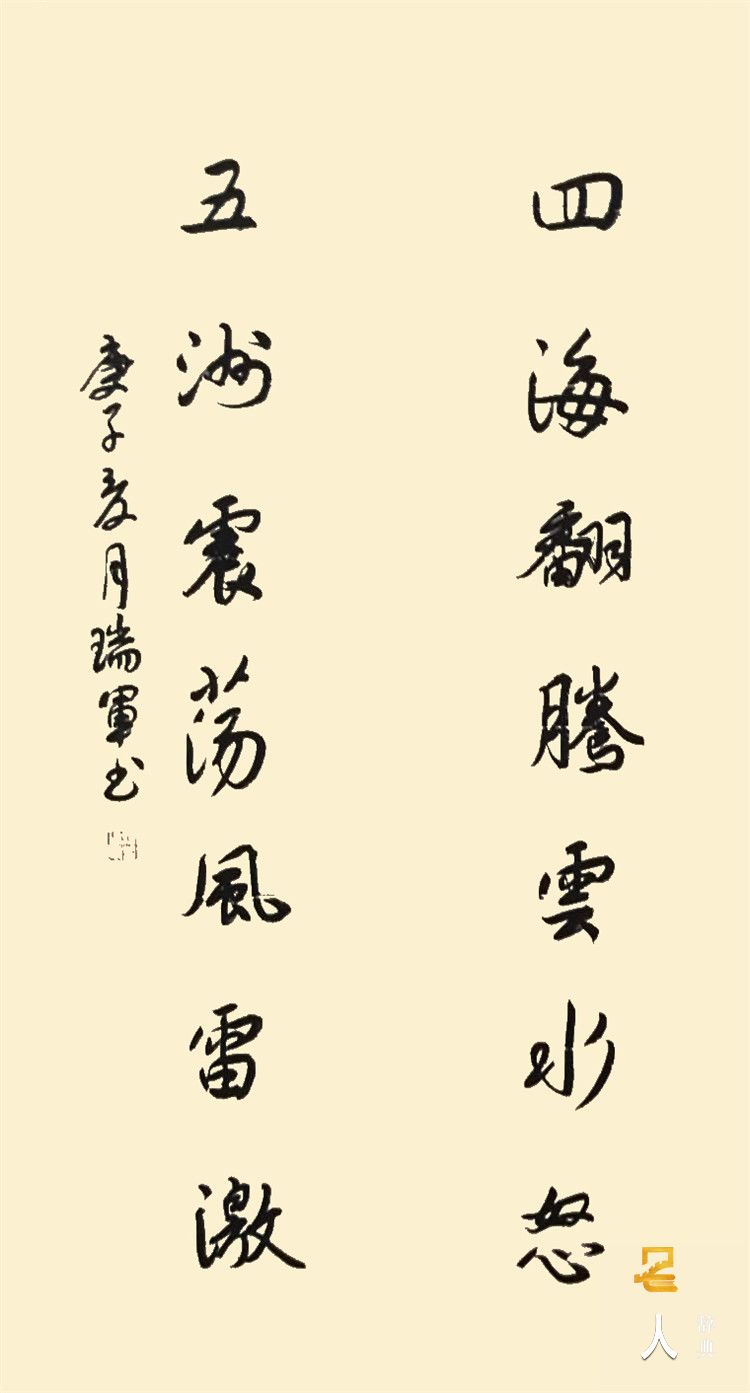 四海翻騰雲水怒
五洲震荡風雷激
庚子夏月瑞軍书
名人
辞典